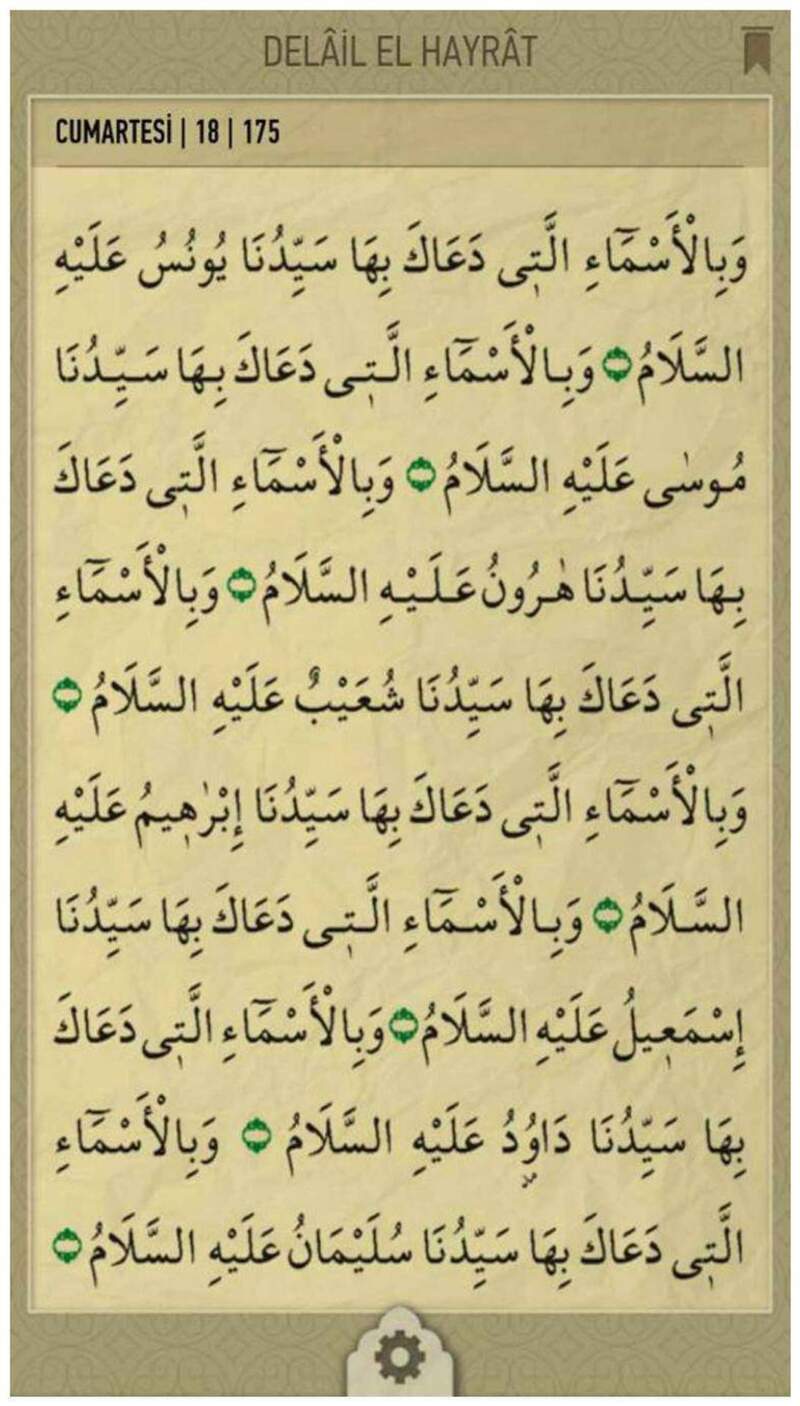 DELÂİL EL HAYRÂT
CUMARTESİ | 18 | 175
وَبِالْأَسْمَٓاءِ الَّتٖى دَعَاكَ بِهَا سَيِّدُنَا يُونُسُ عَلَيْهِ
السَّلَامُ وَبِالْأَسْمَٓاءِ الَّتٖى دَعَاكَ بِهَا سَيِّدُنَا
مُوسٰى عَلَيْهِ السَّلَامُ وَبِالْأَسْمَٓاءِ الَّتٖى دَعَاكَ
بِهَا سَيِّدُنَا هٰرُونُ عَلَيْهِ السَّلَامُ وَبِالْأَسْمَٓاءِ
الَّتٖى دَعَاكَ بِهَا سَيِّدُنَا شُعَيْبٌ عَلَيْهِ السَّلَامُ
وَبِالْأَسْمَٓاءِ الَّتٖى دَعَاكَ بِهَا سَيِّدُنَا إِبْرٰهٖيمُ عَلَيْهِ
السَّلَامُ وَبِالْأَسْمَٓاءِ الَّتٖى دَعَاكَ بِهَا سَيِّدُنَا
إِسْمَعٖيلُ عَلَيْهِ السَّلَامُ وَبِالْأَسْمَٓاءِ الَّتٖى دَعَاكَ
بِهَا سَيِّدُنَا دَاوُدُ عَلَيْهِ السَّلَامُ وَبِالْأَسْمَٓاءِ
الَّتٖى دَعَاكَ بِهَا سَيِّدُنَا سُلَيْمَانُ عَلَيْهِ السَّلَامُ